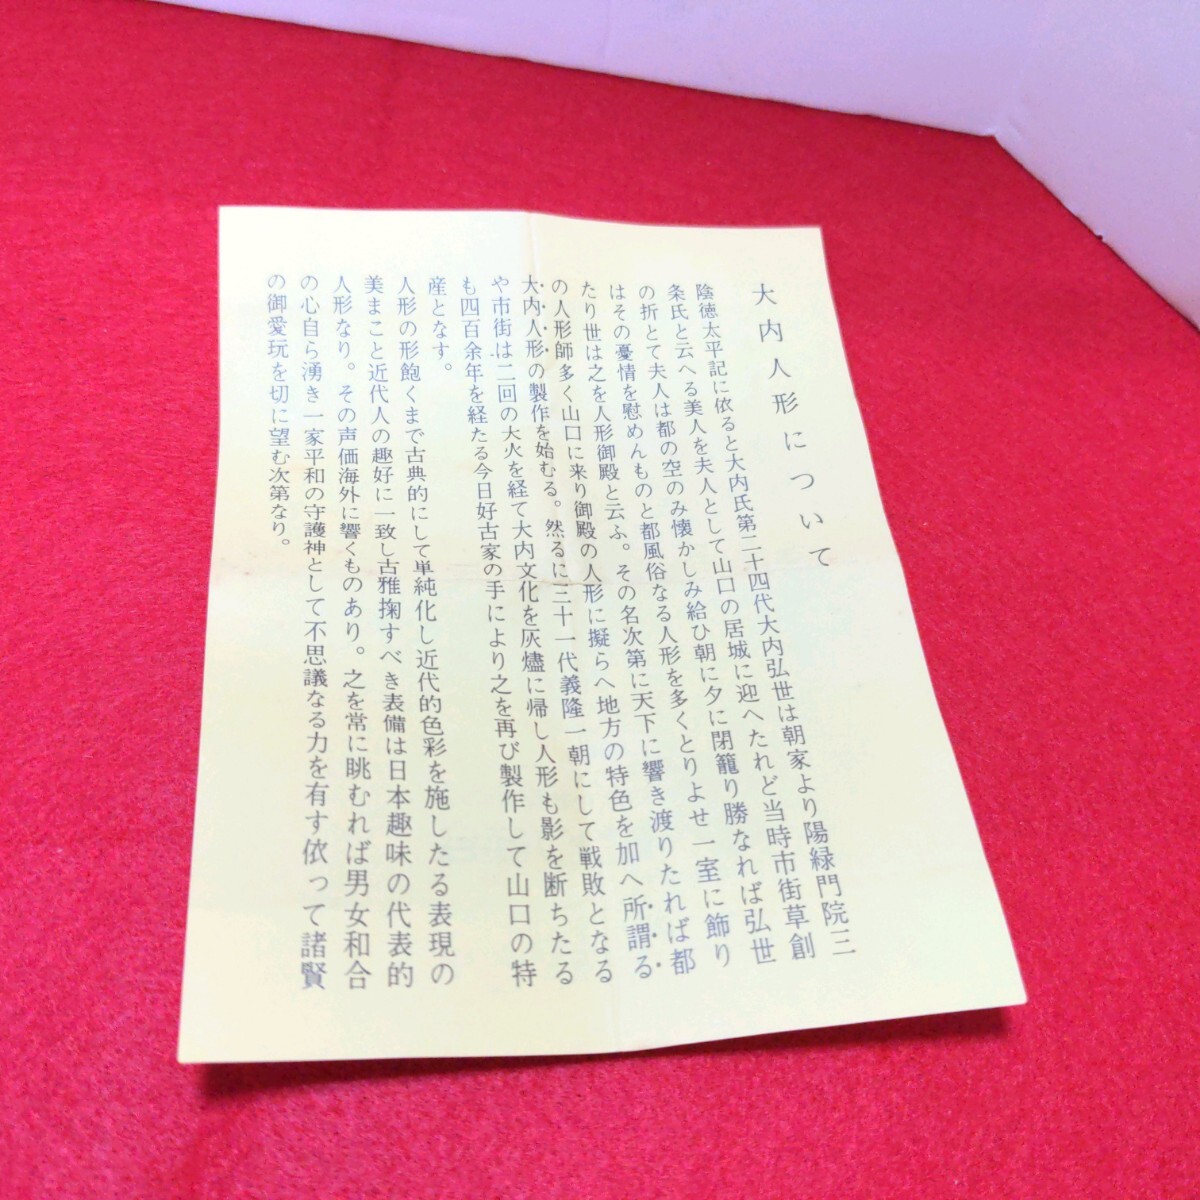 大内人形について
陰徳太平記に依ると大内氏第二十四代大内弘世は朝家より陽緑門院三
条氏と云へる美人を夫人として山口の居城に迎へたれど当時市街草創
の折とて夫人は都の空のみ懐かしみ給ひ朝に夕に閉籠り勝なれば弘世
はその憂情を慰めんものと都風俗なる人形を多くとりよせ一室に飾り
たり世は之を人形御殿と云ふ。その名次第に天下に響き渡りたれば都
の人形師多く山口に来り御殿の人形に擬らへ地方の特色を加へ所謂る
大内人形の製作を始むる。然るに三十一代義隆一朝にして戦敗となる
や市街は二回の大火を経て大内文化を灰燼に帰し人形も影を断ちたる
も四百余年を経たる今日好古家の手により之を再び製作して山口の特
産となす。
人形の形飽くまで古典的にして単純化し近代的色彩を施したる表現の
美まこと近代人の趣好に一致し古雅掬すべき表備は日本趣味の代表的
人形なり。その声価海外に響くものあり。之を常に眺むれば男女和合
の心自ら湧き一家平和の守護神として不思議なる力を有す依って諸賢
の御愛玩を切に望む次第なり。